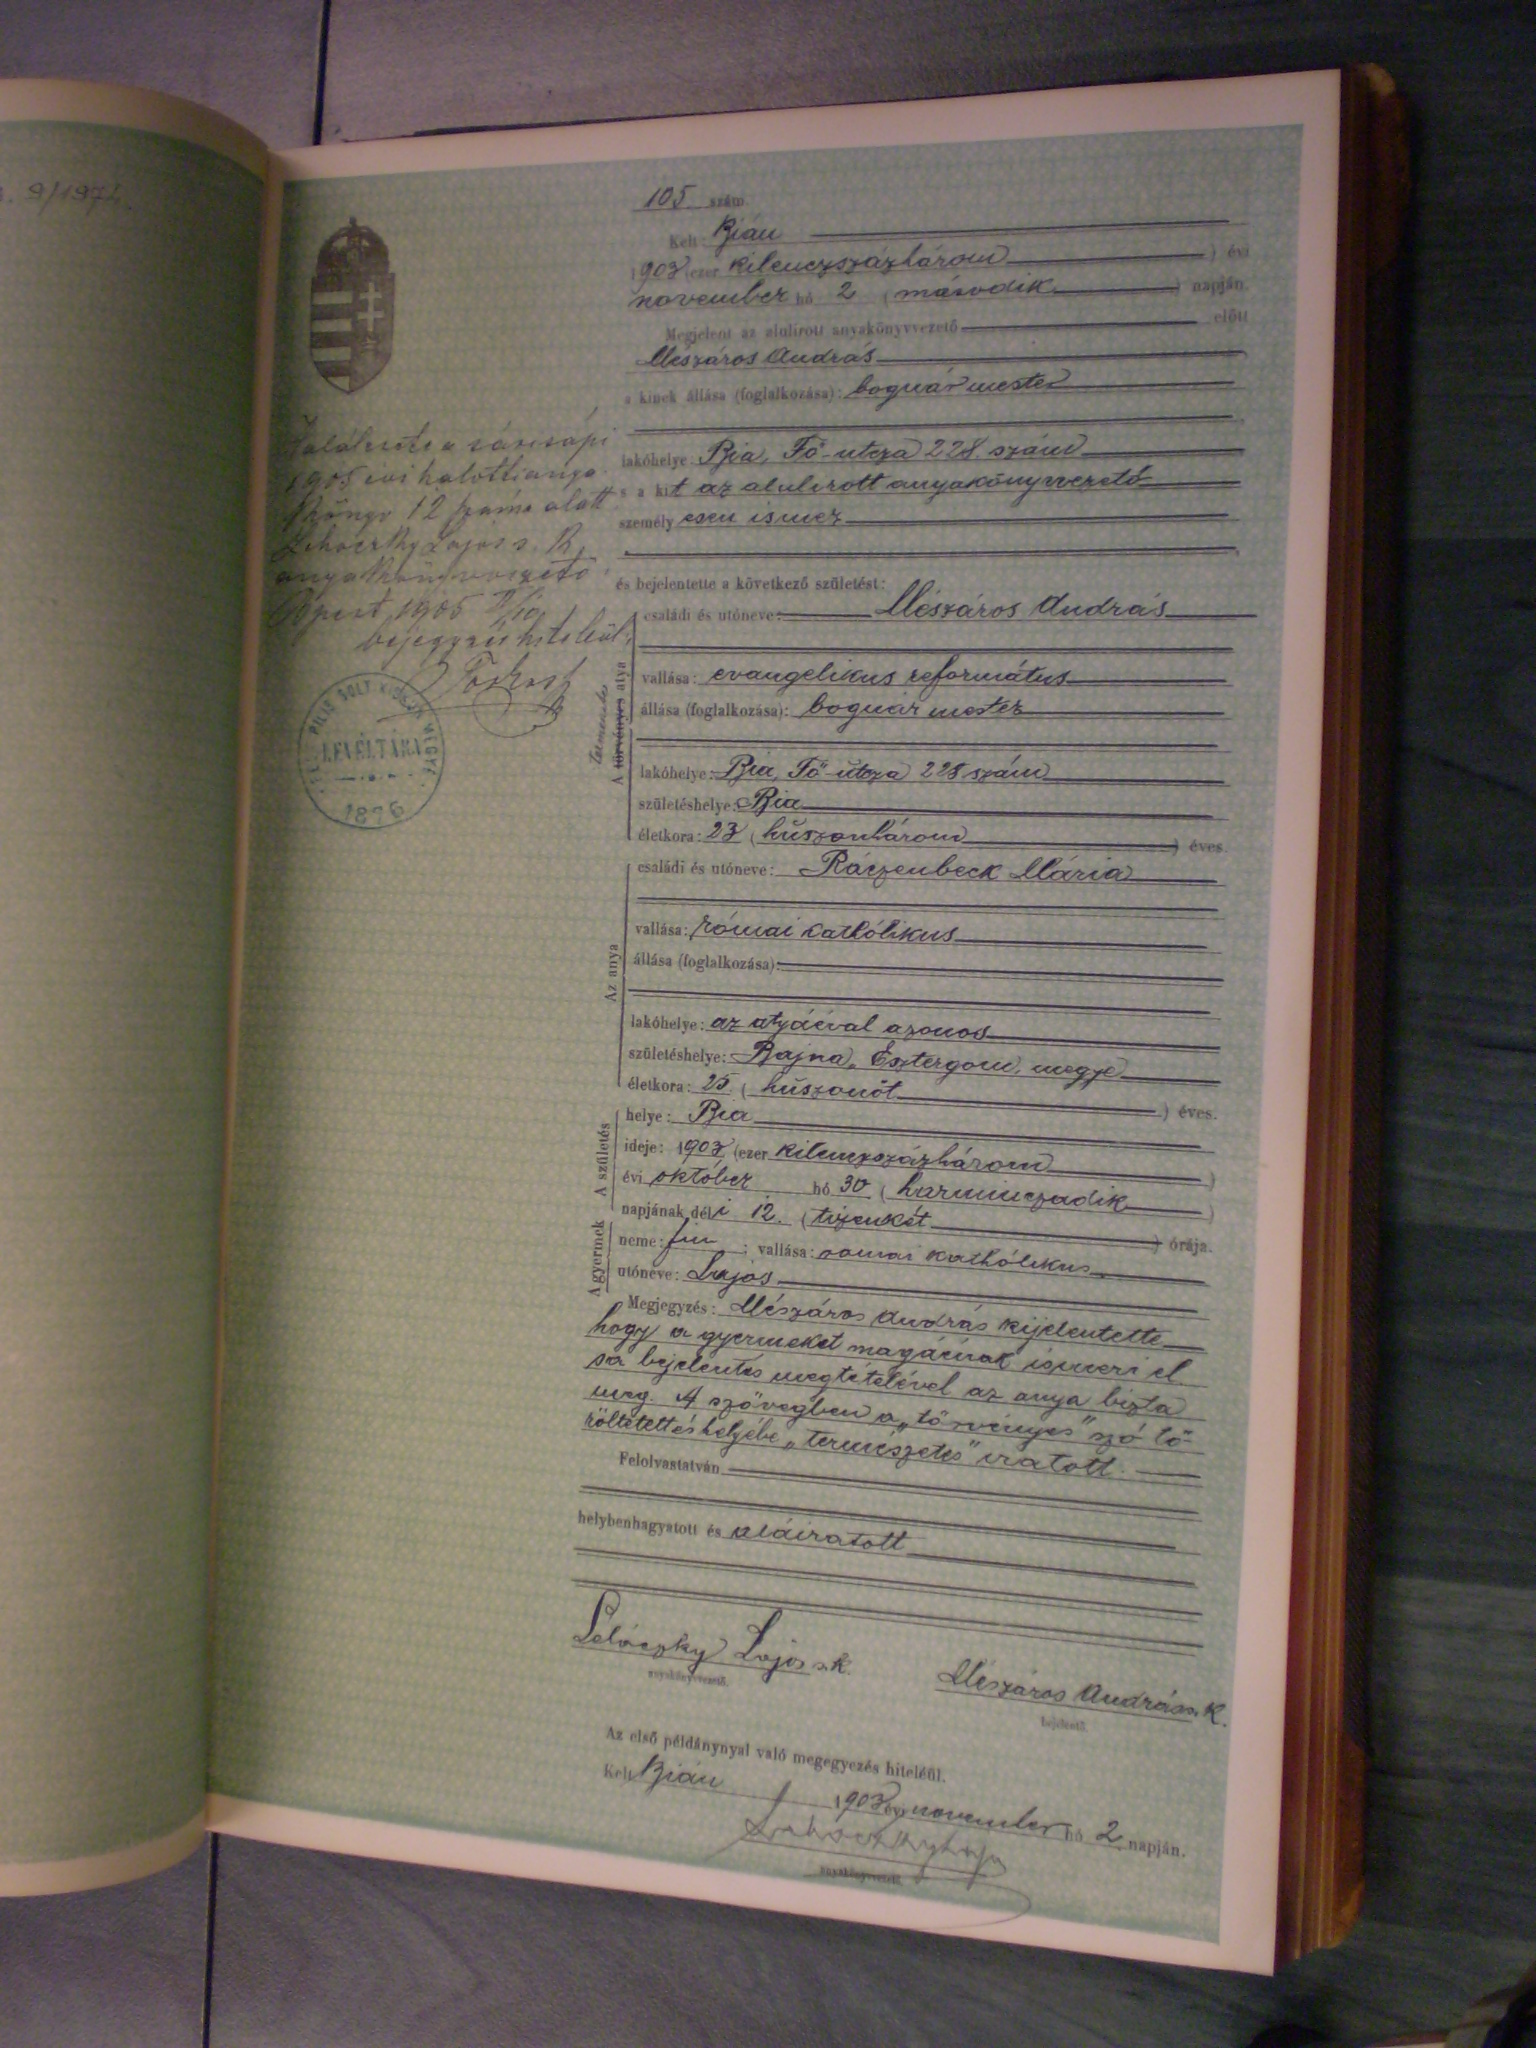 9/1971.
105 szám.
Kelt: Bián
1903 (ezer kilenczszázhárom ) évi
november hó 2 (második ) napján.
Megjelent az alulírott anyakönyvvezető előtt
Mészáros András
a kinek állása (foglalkozása): bognár mester
lakóhelye: Bia, Fő-utcza 228. szám
s a kit az alulirott anyakönyvvezető
személyesen ismer
és bejelentette a következő születést:
A törvényes atya
természetes
családi és utóneve: Mészáros András
vallása: evangelikus református
állása (foglalkozása): bognár mester
lakóhelye: Bia, Fő-utcza 228 szám
születéshelye: Bia
életkora: 23 (huszonhárom ) éves.
Az anya
családi és utóneve: Ráczenbeck Mária
vallása: római kathólikus
állása (foglalkozása):
lakóhelye: az atyáéval azonos
születéshelye: Bajna, Esztergom, megye
életkora: 25 (huszonöt ) éves.
A születés
helye: Bia
ideje: 1903 (ezer kilenczszázhárom )
évi október hó 30 (harminczadik )
napjának déli 12. (tizenkét ) órája.
A gyermek
neme: fiu ; vallása: római kathólikus
utóneve: Lajos
Megjegyzés: Mészáros András kijelentette
hogy a gyermeket magáénak ismeri el
s a bejelentés megtételével az anya bizta
meg. A szövegben a „törvényes" szó tö-
röltetett és helyébe „természetes" iratott.
Felolvastatván
helybenhagyatott és aláiratott
Lajos s.k.
anyakönyvvezető.
Mészáros András s. k.
bejelentő.
Az első példánynyal való megegyezés hiteléül.
Kelt Bián 1903 évi november hó 2 napján.
anyakönyvvezető
1905 évi halotti anya
könyv 12 száma alatt
Lajos s. k.
anyakönyvvezető.
Bpest, 1905
bejegyzés hiteléül:
PEST PILIS SOLT KISKUN MEGYE
LEVÉLTÁRA
1876